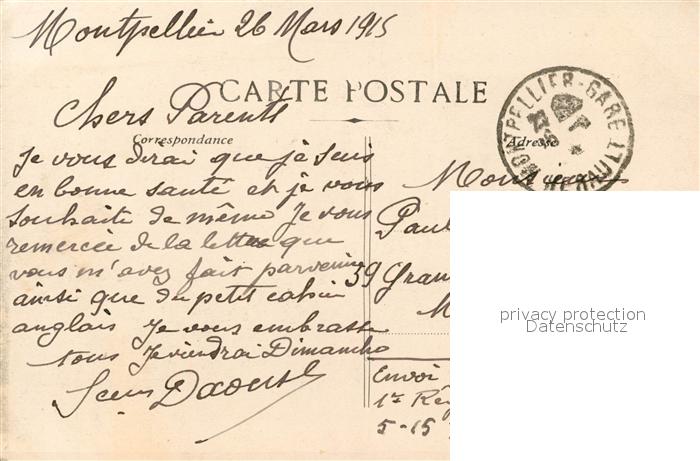 Montpellier 26 Mars 1915
CARTE POSTALE
Chers Parents
Correspondance
Je vous dirai que je suis
en bonne santé et je vous
souhaite de même Je vous
remercie de la lettre que
vous m'avez fait parvenir
ainsi que du petit cahier
anglais Je vous embrasse
tous Je viendrai Dimanche
Daoust
MONTPELLIER-GARE
HERAULT
Adresse
Monsieur
Paul
39 Gran
M
Envoi
1er Rég
5-15
privacy protection
Datenschutz